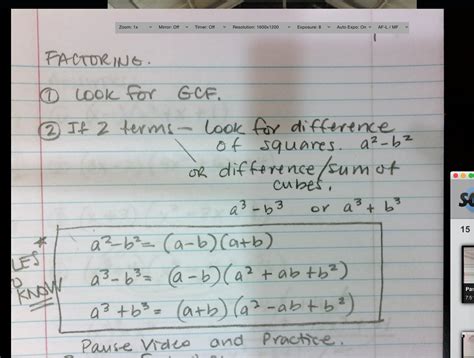 Zoom: 1x Mirror: Off Timer: Off Resolution: 1600x1200 Exposure: 8 Auto Expo: On AF-L / MF
FACTORING.
① Look for GCF.
② If 2 terms – look for difference
of squares. a²-b²
OR difference/sum of
cubes.
a³-b³ or a³+b³
a²-b²= (a-b)(a+b)
a³-b³= (a-b)(a²+ab+b²)
a³+b³= (a+b)(a²-ab+b²)
KNOW
Pause Video and Practice.
15